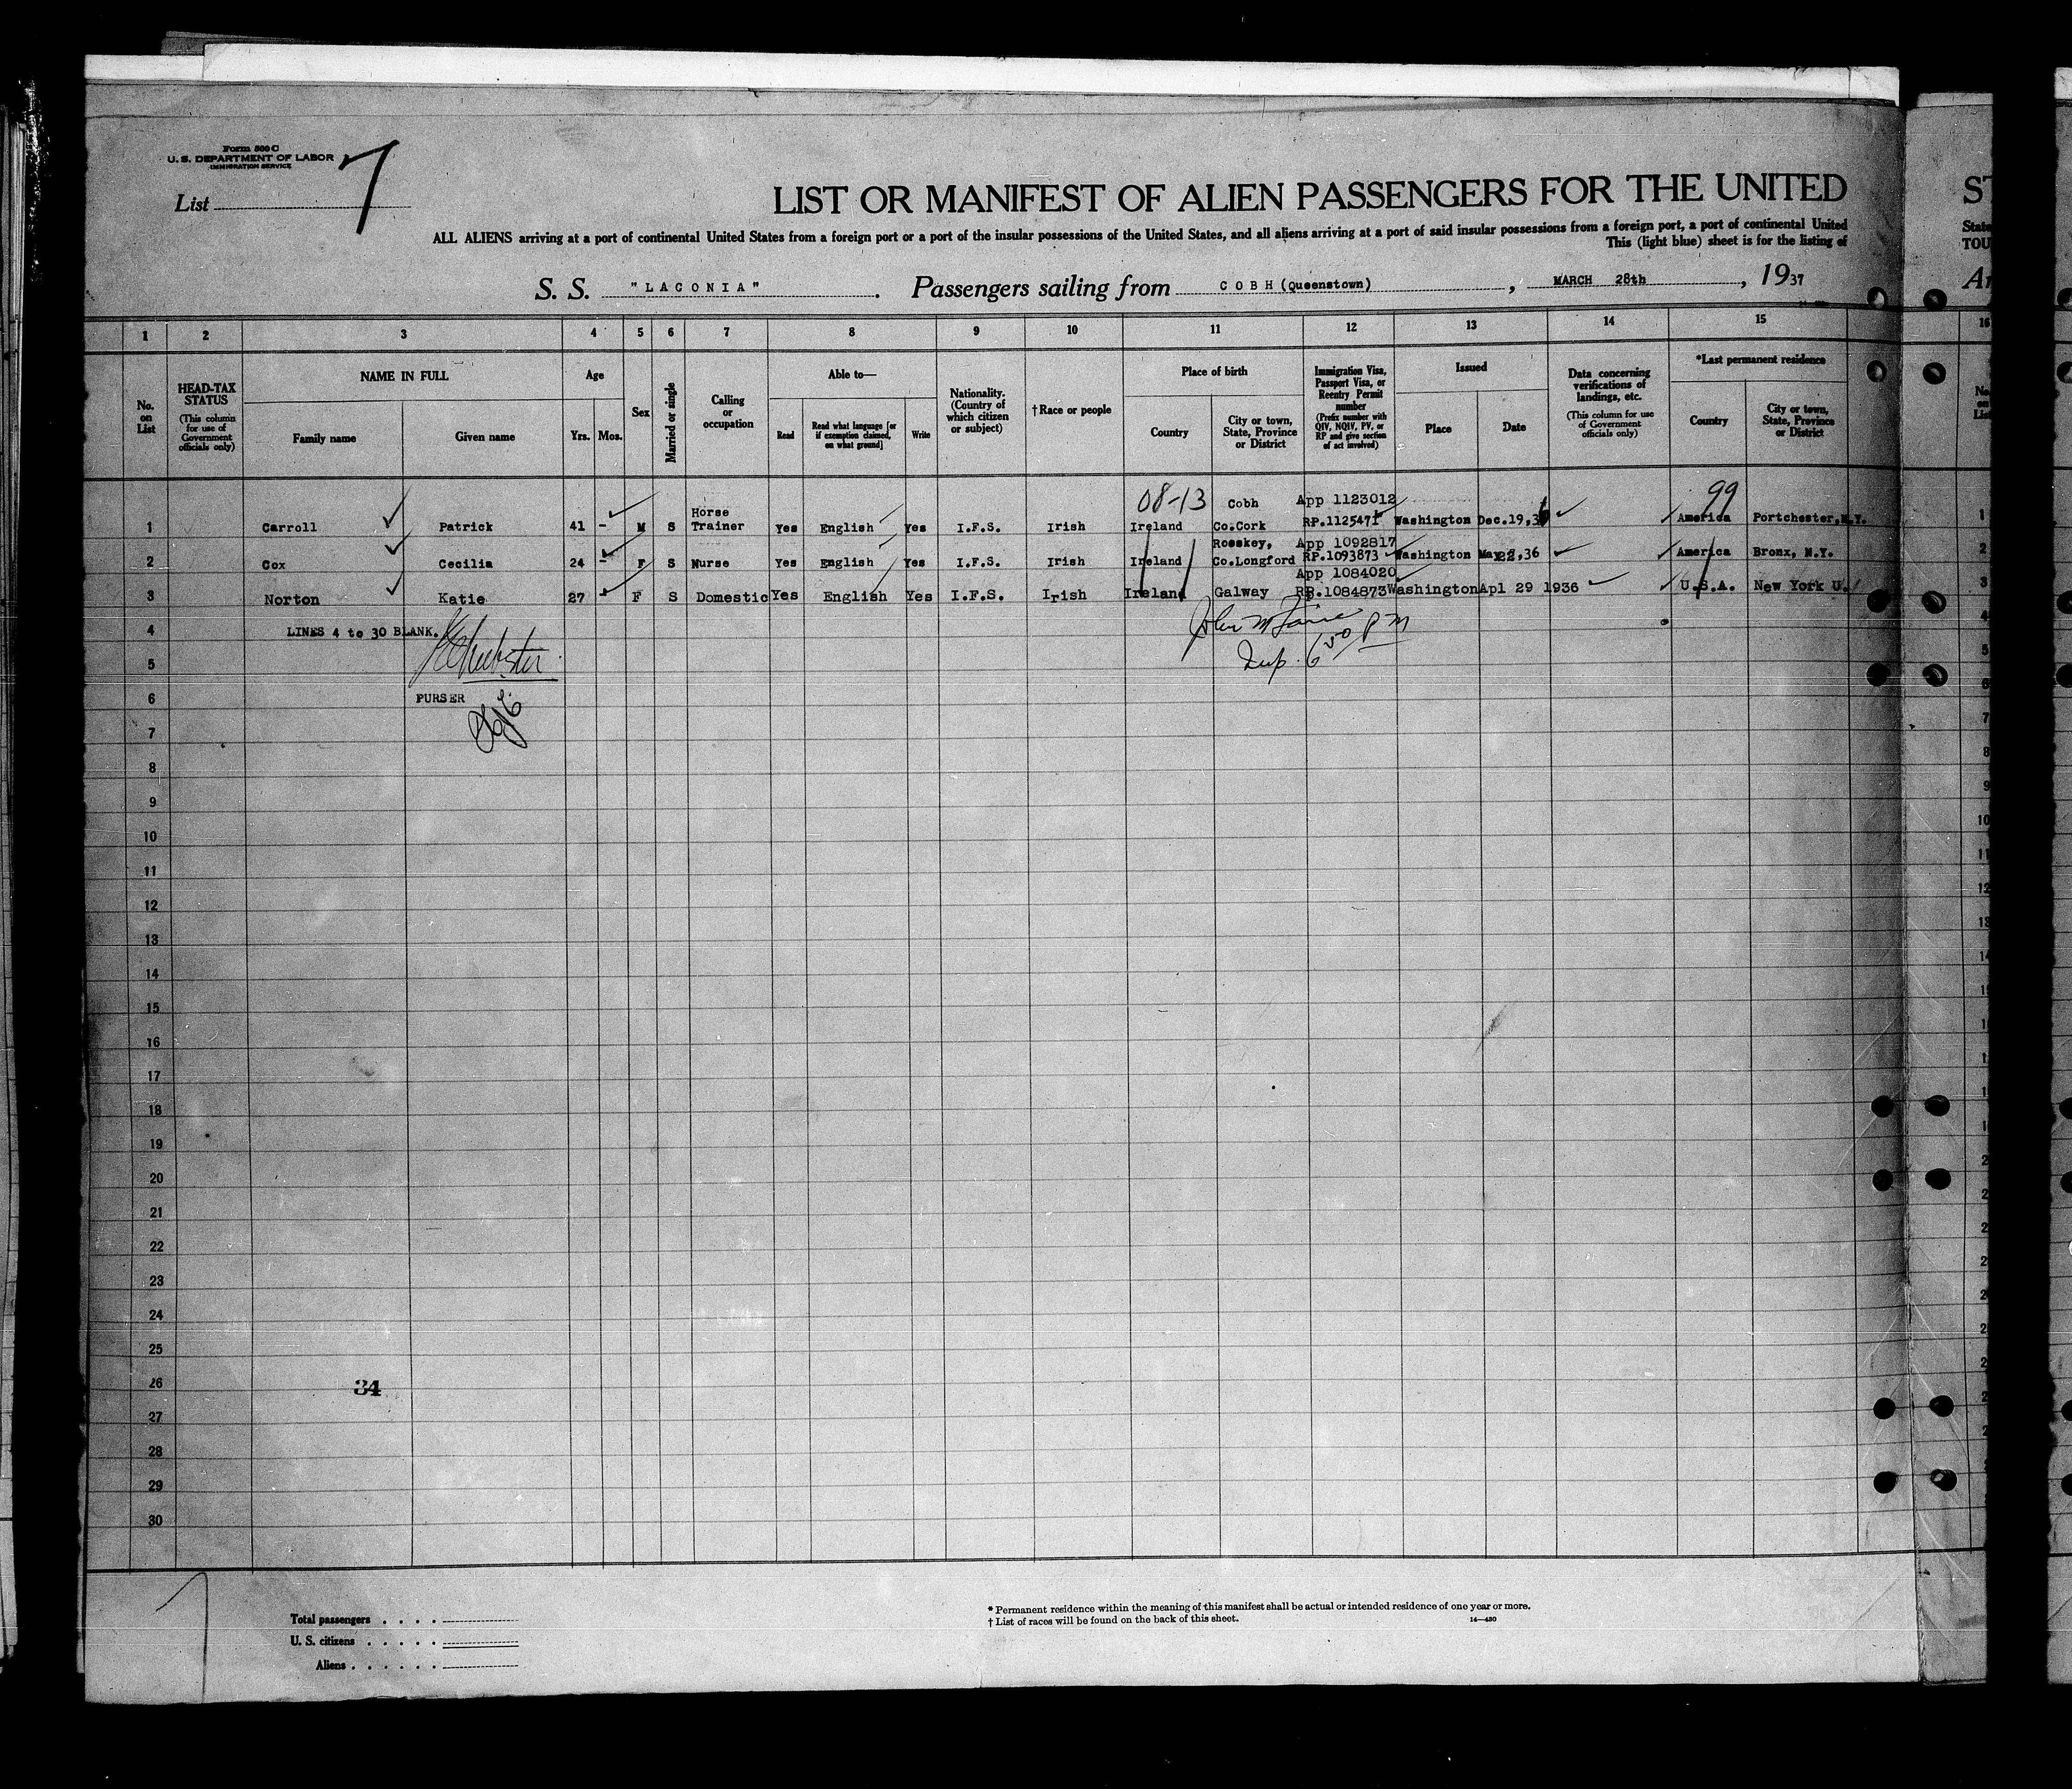 Form 500 C
U. S. DEPARTMENT OF LABOR
IMMIGRATION SERVICE
List 7
LIST OR MANIFEST OF ALIEN PASSENGERS FOR THE UNITED
ALL ALIENS arriving at a port of continental United States from a foreign port or a port of the insular possessions of the United States, and all aliens arriving at a port of said insular possessions from a foreign port, a port of continental United
This (light blue) sheet is for the listing of
S. S. "LACONIA". Passengers sailing from COBH (Queenstown), MARCH 28th, 1937
1 2 3 4 5 6 7 8 9 10 11 12 13 14 15
No. on List
HEAD-TAX STATUS
(This column for use of Government officials only)
NAME IN FULL
Family name
Given name
Age
Yrs. Mos.
Sex
Married or single
Calling or occupation
Able to—
Read
Read what language [or if exemption claimed, on what ground]
Write
Nationality. (Country of which citizen or subject)
† Race or people
Place of birth
Country
City or town, State, Province or District
Immigration Visa, Passport Visa, or Reentry Permit number
(Prefix number with QIV, NQIV, PV, or RP and give section of act involved)
Issued
Place
Date
Data concerning verifications of landings, etc.
(This column for use of Government officials only)
*Last permanent residence
Country
City or town, State, Province or District
08-13 Cobh App 1123012 99
1 Carroll Patrick 41 - M S Horse Trainer Yes English Yes I.F.S. Irish Ireland Co.Cork RP.1125471 Washington Dec.19,36 America Portchester,N.Y.
Rosskey, App 1092817
2 Cox Cecilia 24 - F S Nurse Yes English Yes I.F.S. Irish Ireland Co.Longford RP.1093873 Washington May 22,36 America Bronx, N.Y.
App 1084020
3 Norton Katie 27 F S Domestic Yes English Yes I.F.S. Irish Ireland Galway RP.1084873 Washington Apl 29 1936 U.S.A. New York U.
4 LINES 4 to 30 BLANK.
5
Insp. 6 50 PM
6 PURSER
7
8
9
10
11
12
13
14
15
16
17
18
19
20
21
22
23
24
25
26 34
27
28
29
30
Total passengers . . . .
U. S. citizens . . . . .
Aliens . . . . . .
* Permanent residence within the meaning of this manifest shall be actual or intended residence of one year or more.
† List of races will be found on the back of this sheet.
14—430